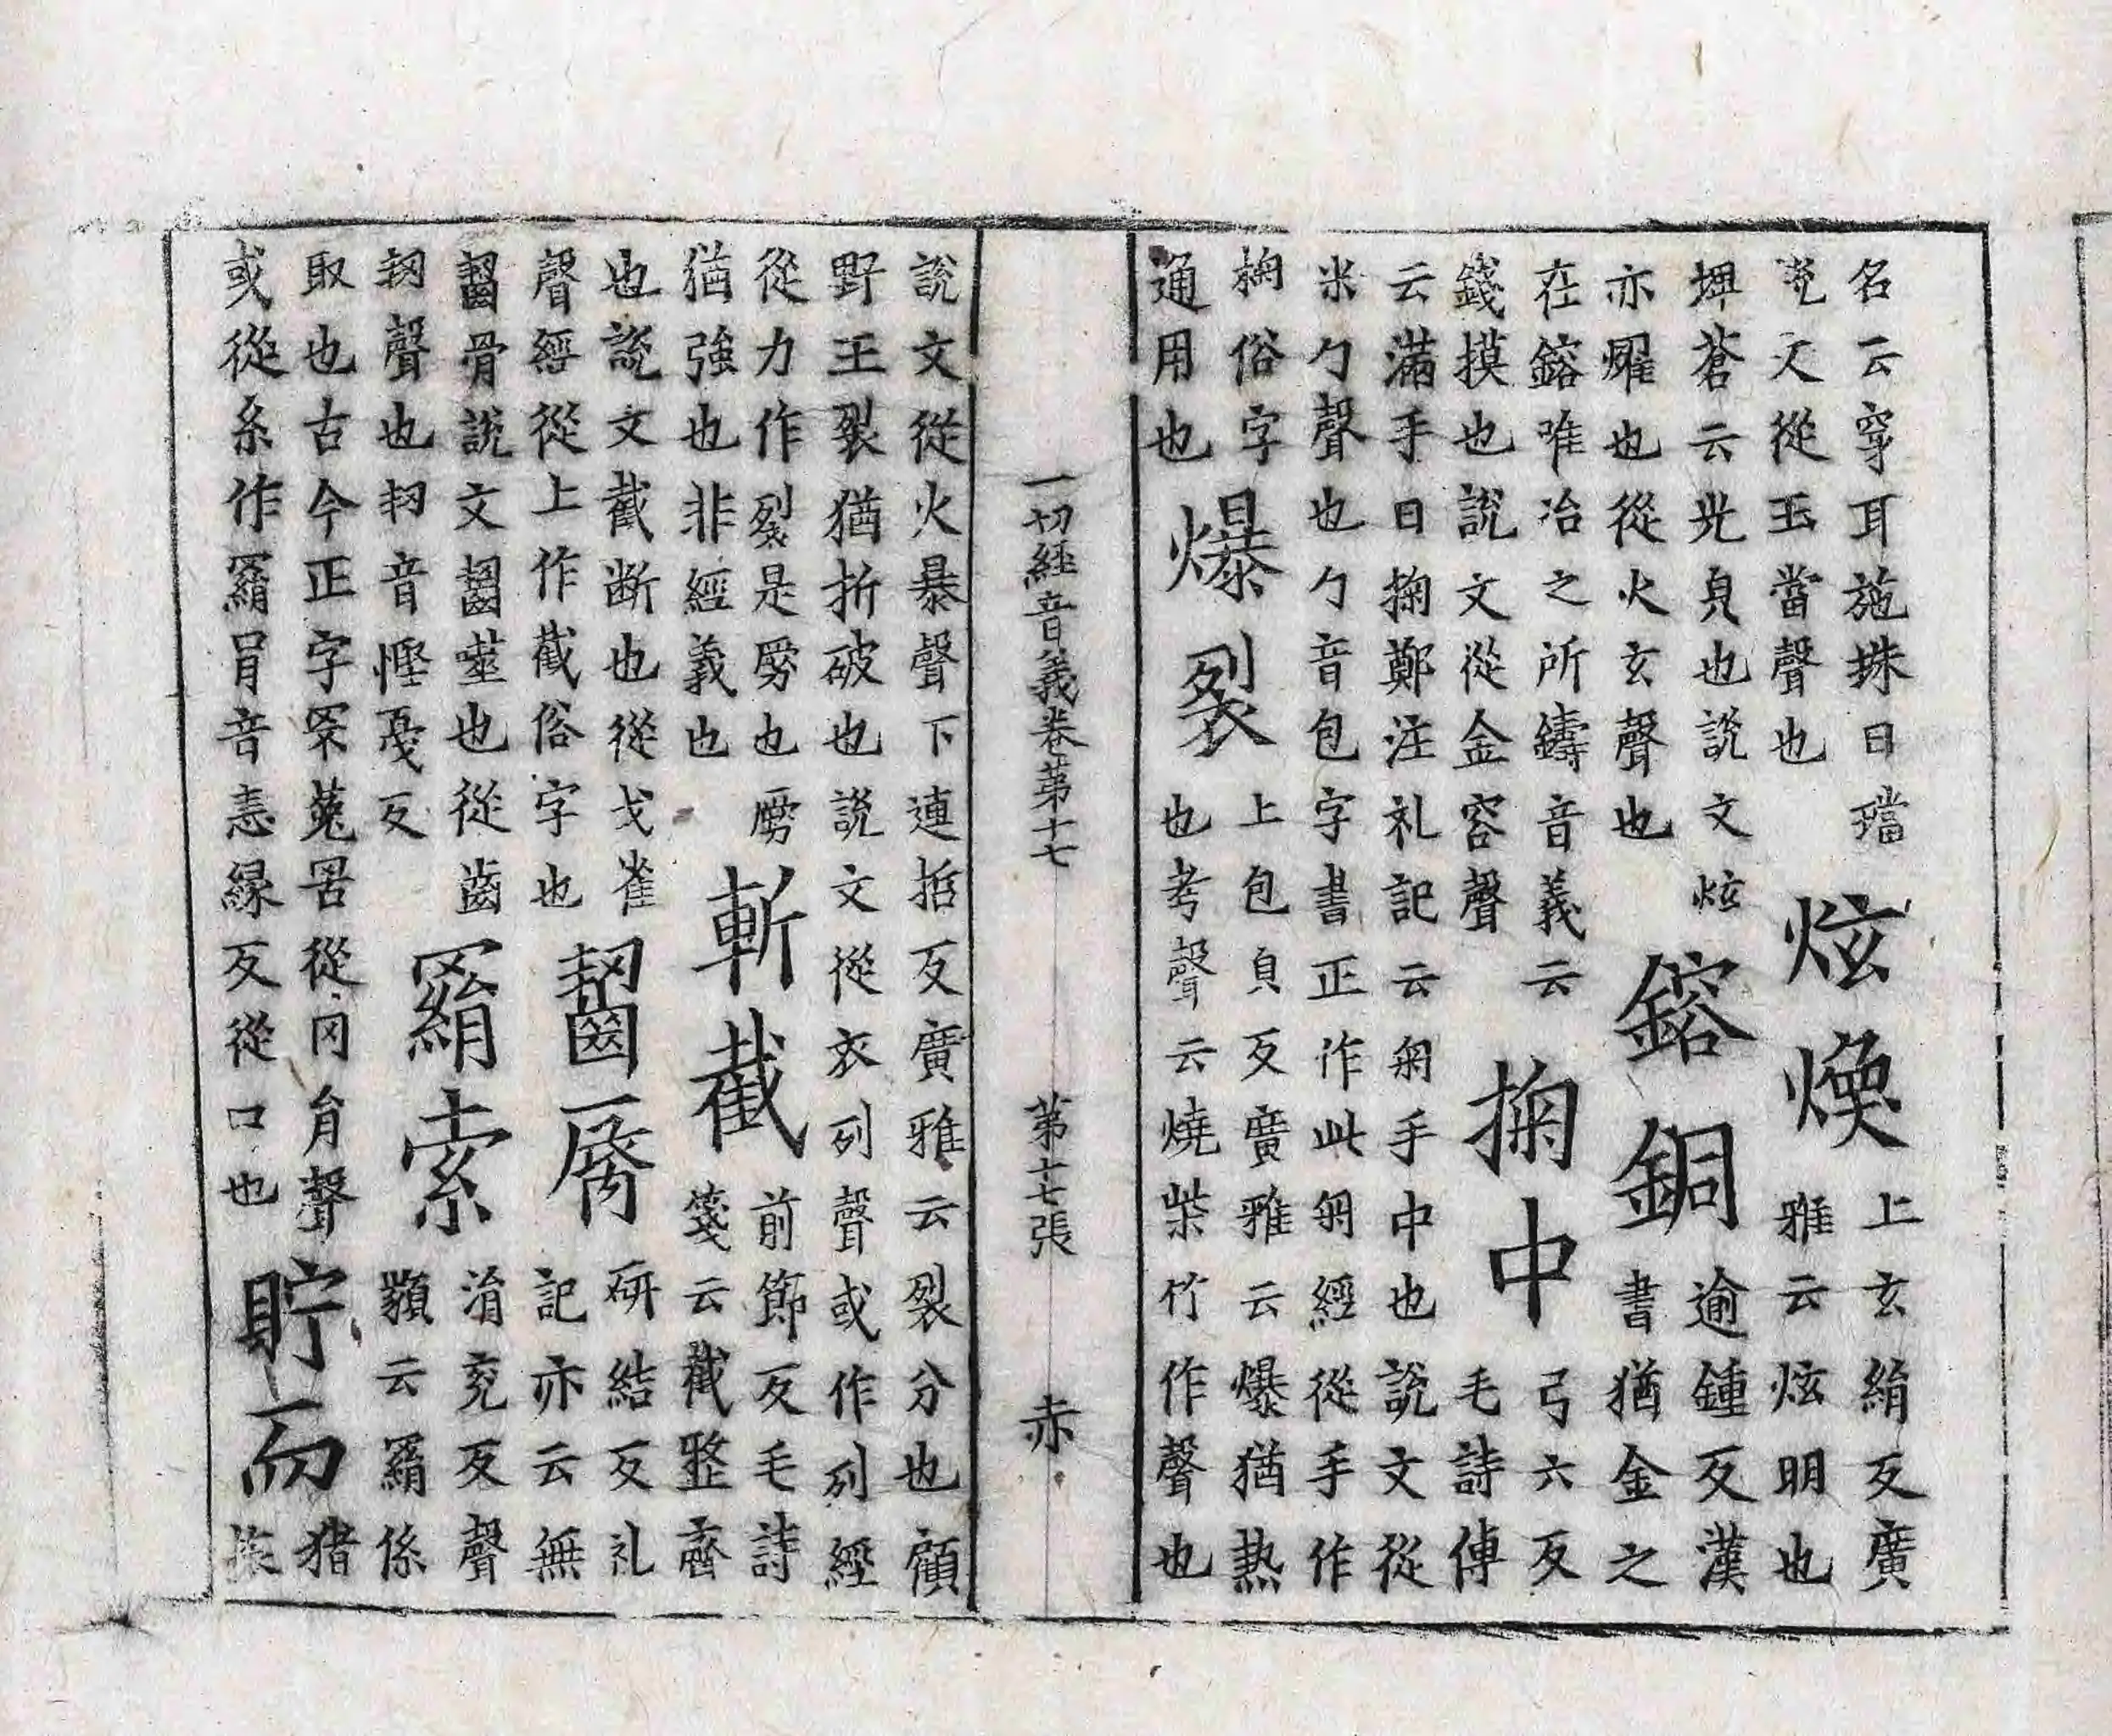 名云穿耳施珠曰璫
說文從玉當聲也
炫煥
上玄絹反廣
雅云炫明也
埤蒼云光皃也說文炫
亦燿也從火玄聲也
鎔銅
逾鍾反漢
書猶金之
在鎔唯冶之所鑄音義云
錢摸也說文從金容聲
掬中
弓六反
毛詩傳
云滿手曰掬鄭注礼記云匊手中也說文從
米勹聲也勹音包字書正作此匊經從手作
掬俗字
通用也
爆裂
上包皃反廣雅云爆猶熱
也考聲云燒柴竹作聲也
一切經音義卷第十七 第十七張 赤
說文從火暴聲下連哲反廣雅云裂分也顧
野王裂猶折破也說文從衣列聲或作列經
從力作裂是勥也勥
猶強也非經義也
斬截
前節反毛詩
箋云截整齊
也說文截断也從戈雀
聲經從上作截俗字也
齧脣
研結反礼
記亦云無
齧骨說文齧噬也從齒
㓞聲也㓞音慳戛反
羂索
涓兖反聲
類云羂係
取也古今正字罘菟罟從冈肙聲
或從糸作羂肙音恚緣反從口也
貯而
猪